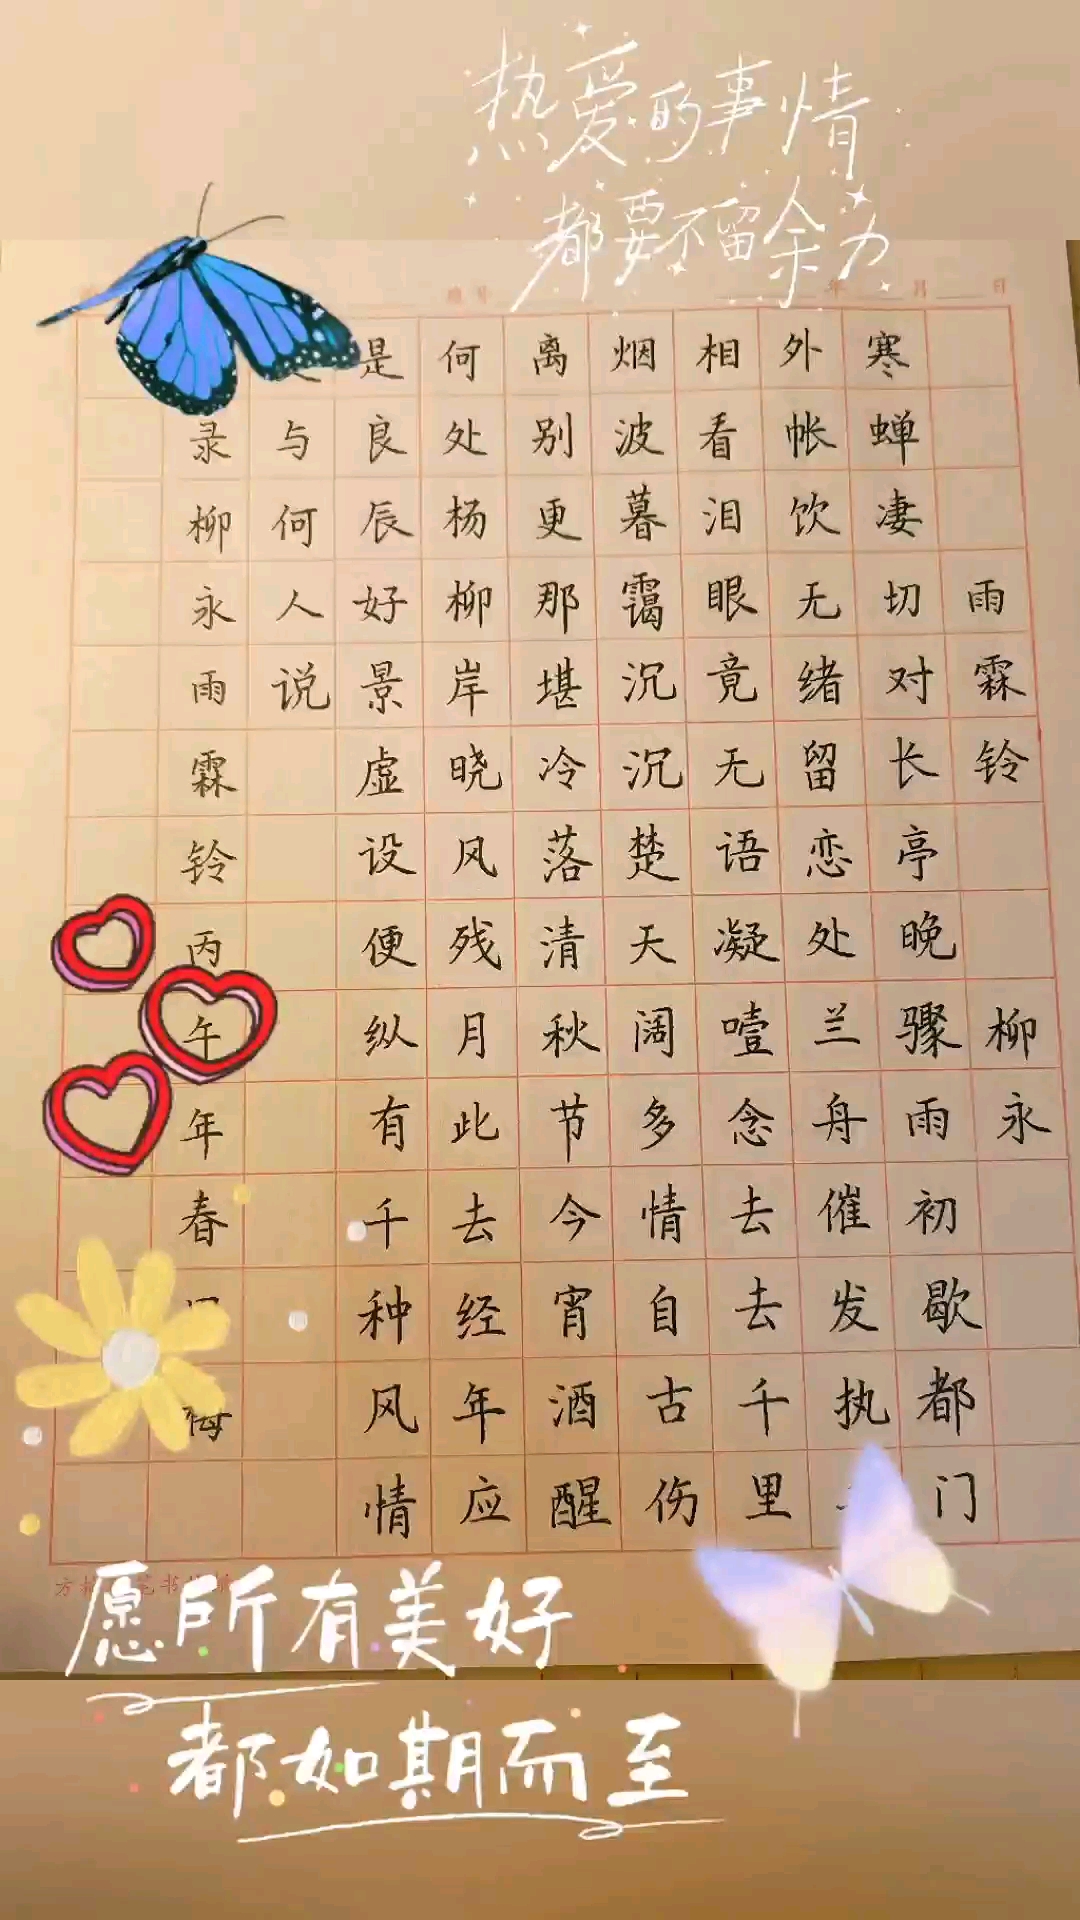 热爱的事情
都要不留余力
年 月 日
雨霖铃 柳永
寒蝉凄切对长亭晚骤雨初歇都门
外帐饮无绪留恋处兰舟催发执
相看泪眼竟无语凝噎念去去千里
烟波暮霭沉沉楚天阔多情自古伤
离别更那堪冷落清秋节今宵酒醒
何处杨柳岸晓风残月此去经年应
是良辰好景虚设便纵有千种风情
与何人说
录柳永雨霖铃丙午年春
愿所有美好
都如期而至